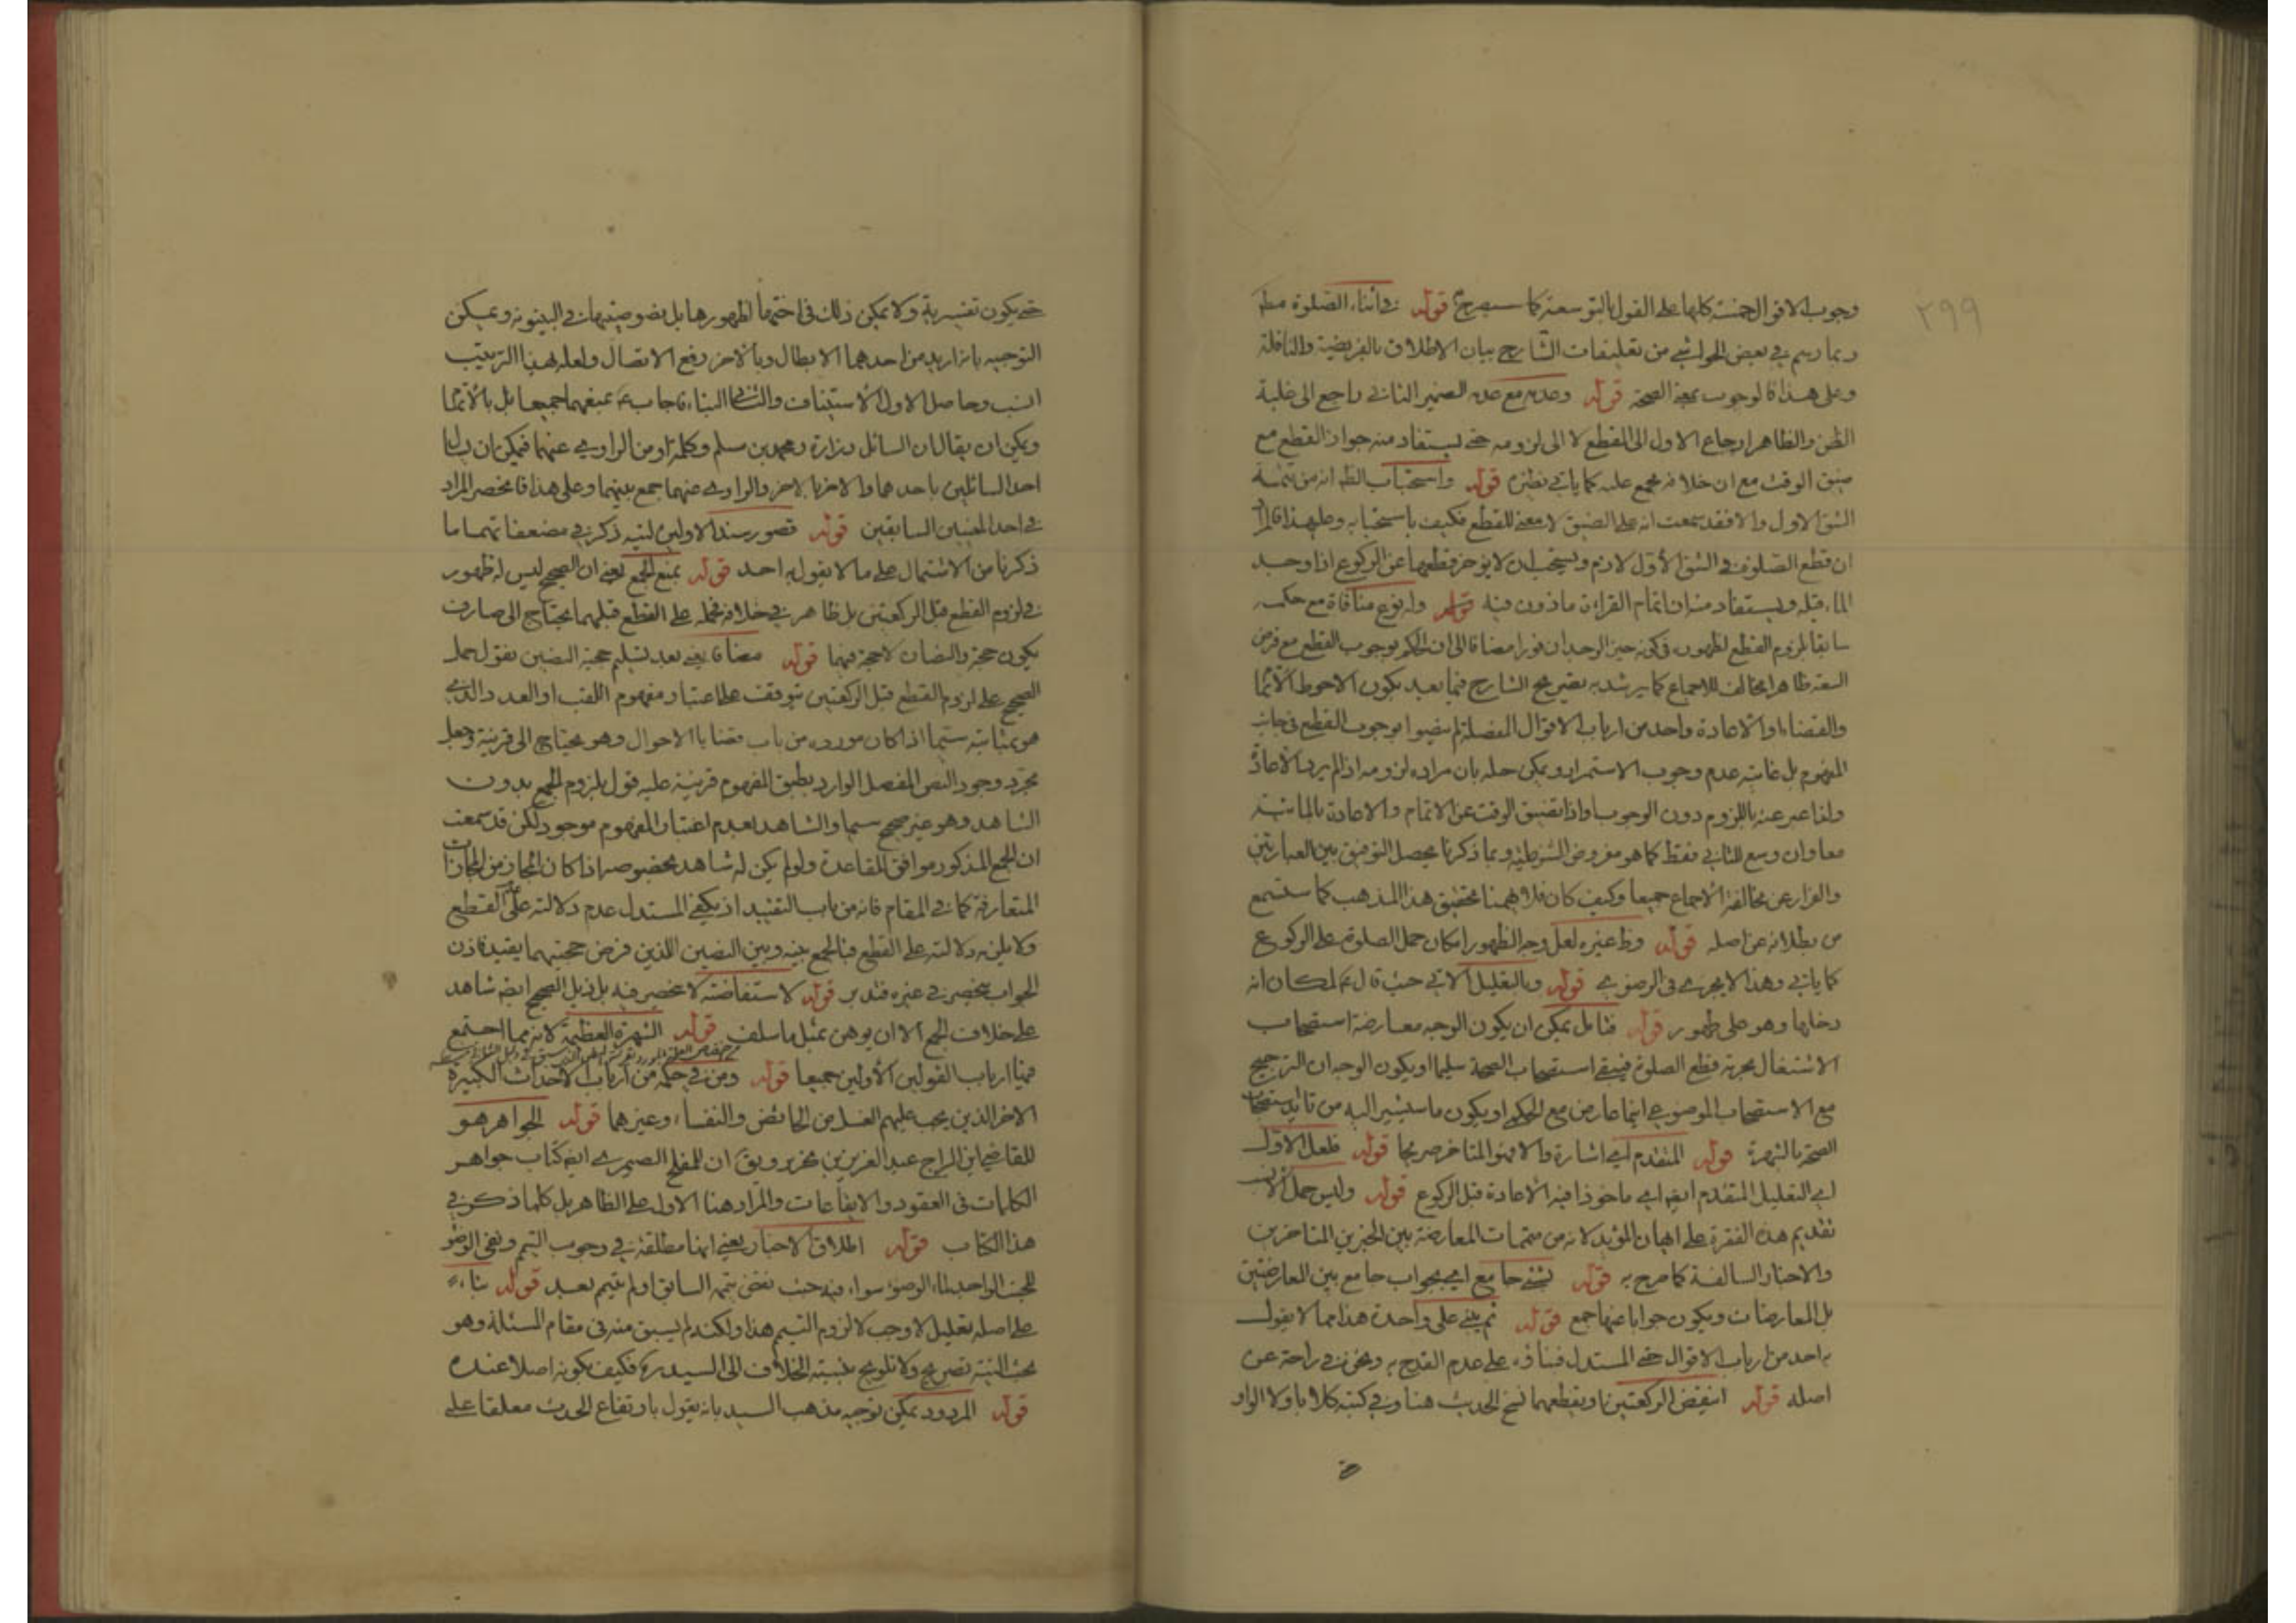 ٢٩٩
وجوب الاقوال الخمسة كلها على القول بالتوسعة كما سيصرح قوله في اثناء الصلوة مطلقا
وبما رسم في بعض الحواشي من تعليقات الشارح بيان الاطلاق بالفريضة والنافلة
وعلى هذا فالوجوب بمعنى الصحة قوله وعدمه مع عدمه الضمير الثاني راجع الى غلبة
الظن والظاهر ارجاع الاول الى القطع لا الى لزومه حتى يستفاد منه جواز القطع مع
ضيق الوقت مع ان خلافه مجمع عليه كما ياتي نظيره قوله واستحباب الظ انه من تتمة
الشق الاول والا فقد سمعت انه على الضيق لا معنى للقطع فكيف باستحبابه وعلى هذا فالمراد
ان قطع الصلوة في الشق الاول لازم ويستحب ان لا يؤخر قطعها عن الركوع اذا وجد
الماء قبله ويستفاد منه ان اتمام القراءة ماذون فيه قوله وله نوع منافاة مع حكمه
سابقا بلزوم القطع لظهوره في كونه حين الوجدان فورا مضافا الى ان الحكم بوجوب القطع مع فرض
السعة ظاهرا مخالف للاجماع كما يرشد به تصريح الشارح فيما بعد بكون الاحوط الاتمام
والقضاء او الاعادة واحد من ارباب الاقوال المفصلة لم يضيوا بوجوب القطع في جانب
المفهوم بل غايته عدم وجوب الاستمرار ويمكن حله بان مراده لزومه اذا لم يرد الاعادة
ولذا عبر عنه باللزوم دون الوجوب واذا تضيق الوقت عن الاتمام والاعادة بالمائية
معا وان وسع للثاني فقط كما هو مفروض الشرطية وبما ذكرنا يحصل التوفيق بين العبارتين
والفرار عن مخالفة الاجماع جميعا وكيف كان فلا يهمنا تحقيق هذا المذهب كما ستسمع
من بطلانه عن اصله قوله وظ غيره لعل وجه الظهور امكان حمل الصلوة على الركوع
كما ياتي وهذا لا يجري في الرضوي قوله وبالتعليل الاتي حيث قال ع لمكان انه
دخلها وهو على طهور قوله فتامل يمكن ان يكون الوجه معارضة استصحاب
الاشتغال بحرمة قطع الصلوة فيبقى استصحاب الصحة سليما او يكون الوجه ان الترجيح
مع الاستصحاب الموضوعي اينما عارض مع الحكمي او يكون ما سيشير اليه من تائيد استصحاب
الصحة بالشهرة قوله المتقدم اي اشارة والا فهو المتاخر صريحا قوله فلعل الاول
اي التعليل المتقدم ايضا اي ماخوذا فيه الاعادة قبل الركوع قوله وليس حمل الاتي
تقديم هذه الفقرة على ايهان المؤيد لانه من متممات المعارضة بين الخبرين المتاخرين
والاخبار السالفة كما صرح به قوله لشئ جامع اي بجواب جامع بين المعارضتين
بل المعارضات ويكون جوابا عنها جمع قوله ثم يبني على واحدة هذا مما لا يقول
به احد من ارباب الاقوال حتى المستدل فبناؤه على عدم القدح به ونحن في راحة عن
اصله قوله اينقض الركعتين او يقطعهما نسخ الحديث هنا وفي كتبه كلا باو لا الواو
حتى يكون تفسيرية ولا يمكن ذلك في اختها لظهورها بل نصوصيتها في البينونة ويمكن
التوجيه بانه اريد من احدهما الابطال وبالاخر رفع الاتصال ولعله بهذا الترتيب
انسب وحاصل الاول الاستيناف والثاني البناء فاجاب ع بمنعهما جميعا بل بالاتمام
ويمكن ان يقال ان السائل زرارة ومحمد بن مسلم وكلمة او من الراوي عنهما فيمكن ان يسئل
احد السائلين باحدهما والاخر بالاخر والراوي عنهما جمع بينهما وعلى هذا فانحصر المراد
في احد المعنيين السابقين قوله قصور سند الاولين لنيه ذكر في مضعفاتهما ما
ذكرنا من الاشتمال على ما لا يقول به احد قوله بمنع الجمع يعني ان الصحيح ليس له ظهور
في لزوم القطع قبل الركعتين بل ظاهر في خلافه فحمله على القطع قبلهما يحتاج الى صارف
يكون حجة والنصان لا حجة فيهما قوله مضافا يعني بعد تسليم حجية النصين نقول حمل
الصحيح على لزوم القطع قبل الركعتين يتوقف على اعتبار مفهوم اللقب او العدد والذي
هو بمثابته سيما اذا كان مورده من باب قضايا الاحوال وهو يحتاج الى قرينة وجعل
مجرد وجود النص المفصل الوارد بطبق المفهوم قرينة عليه قول بلزوم الجمع بدون
الشاهد وهو غير صحيح سيما والشاهد لعدم اعتبار المفهوم موجود لكن قد سمعت
ان الجمع المذكور موافق للقاعدة ولو لم يكن له شاهد بخصوصه اذا كان المجاز من المجازات
المتعارفة كما في المقام فانه من باب التقييد اذ يكفي المستدل عدم دلالته على عدم القطع
ولا يلزمه دلالته على القطع فبالجمع بينه وبين النصين اللذين فرض حجيتهما يقيد فاذن
الجواب ينحصر في غيره فتدبر قوله لاستفاضته لا ينحصر فيه بل في ذيل الصحيح ايضا شاهد
على خلاف الجمع الا ان يوهن بمثل ما سلف قوله الشهرة العظيمة لانه مما اجتمع
فيها ارباب القولين الاولين جميعا قوله ومن في حكمه من ارباب الاحداث الكبيرة
الاخر الذين يجب عليهم الغسل من الحائض والنفساء وغيرهما قوله الجواهر هو
للقاضي ابن البراج عبد العزيز بن نحرير ويق ان للمفلح الصيمري ايضا كتاب جواهر
الكلمات في العقود والايقاعات والمراد هنا الاول على الظاهر بل كلما ذكر في
هذا الكتاب قوله اطلاق الاخبار يعني انها مطلقة في وجوب التيمم ونفي الوضوء
للجنب الواجد لماء الوضوء سواء فيه حيث نقض تيممه السابق او لم يتيمم بعد قوله بناء
على اصله تعليل لاوجب لا لزوم التيمم هذا ولكنه لم يسبق منه في مقام المسئلة وهو
بحث النية تصريح ولا تلويح بنسبته الخلاف الى السيد ره فكيف بكونه اصلا عنده
قوله المردود يمكن توجيه مذهب السيد بانه يقول بارتفاع الحدث معلقا على